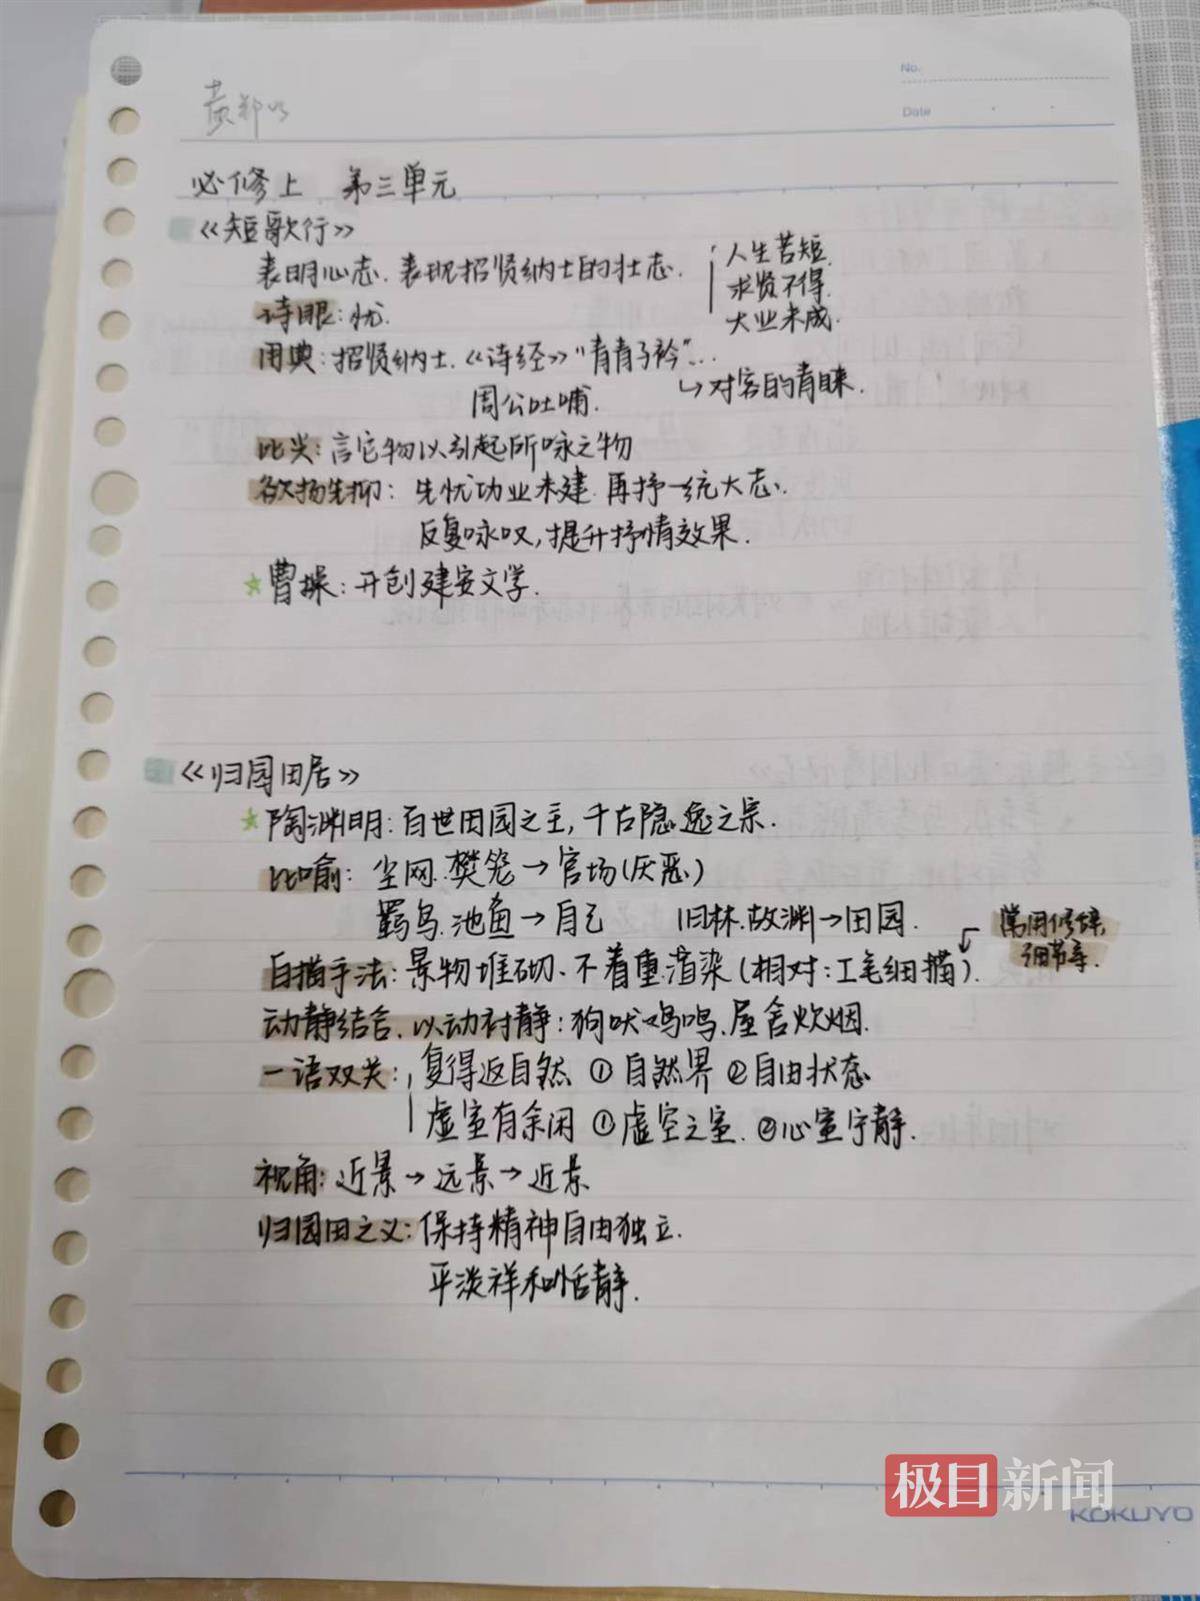 No.
Date
必修上 第三单元
《短歌行》
表明心志.表现招贤纳士的壮志.
人生苦短.
求贤不得.
大业未成.
诗眼:忧.
用典:招贤纳士.《诗经》"青青子衿"...
↳对客的青睐.
周公吐哺.
比兴:言它物以引起所咏之物
欲扬先抑:先忧功业未建.再抒一统大志.
反复咏叹,提升抒情效果.
★曹操:开创建安文学.
《归园田居》
★陶渊明:百世田园之主,千古隐逸之宗.
比喻:尘网.樊笼→官场(厌恶)
羁鸟.池鱼→自己 旧林.故渊→田园.
常用修辞,
细节等.
白描手法:景物堆砌、不着重渲染(相对:工笔细描).
动静结合.以动衬静:狗吠鸡鸣、屋舍炊烟.
一语双关:复得返自然 ①自然界 ②自由状态
虚室有余闲 ①虚空之室.②心室宁静.
视角:近景→远景→近景
归园田之义:保持精神自由独立.
平淡祥和恬静.
极目新闻
KOKUYO